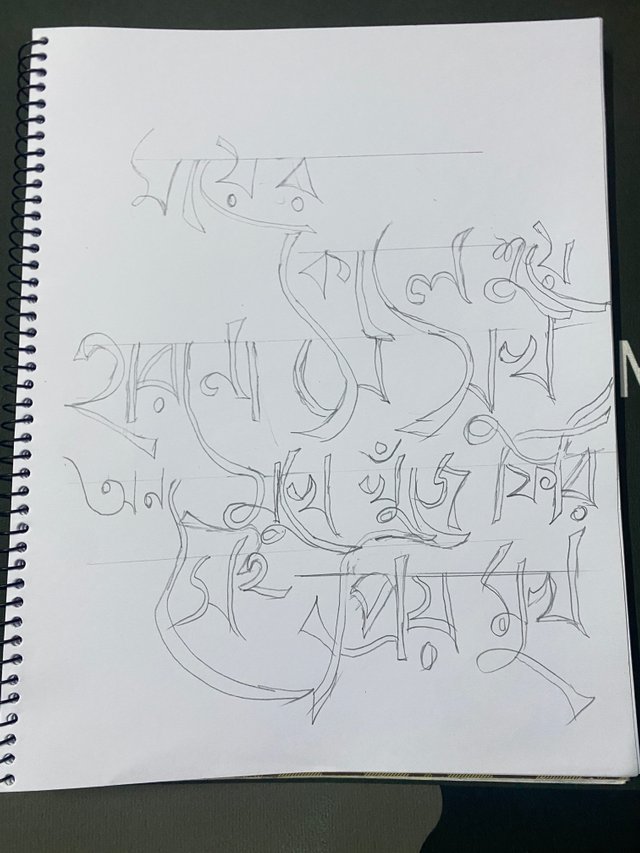 মায়ের
কোলে শুয়ে
হারানো সে সুখ
অন্য মুখে খুঁজে ফিরি
সেই প্রিয় মুখ